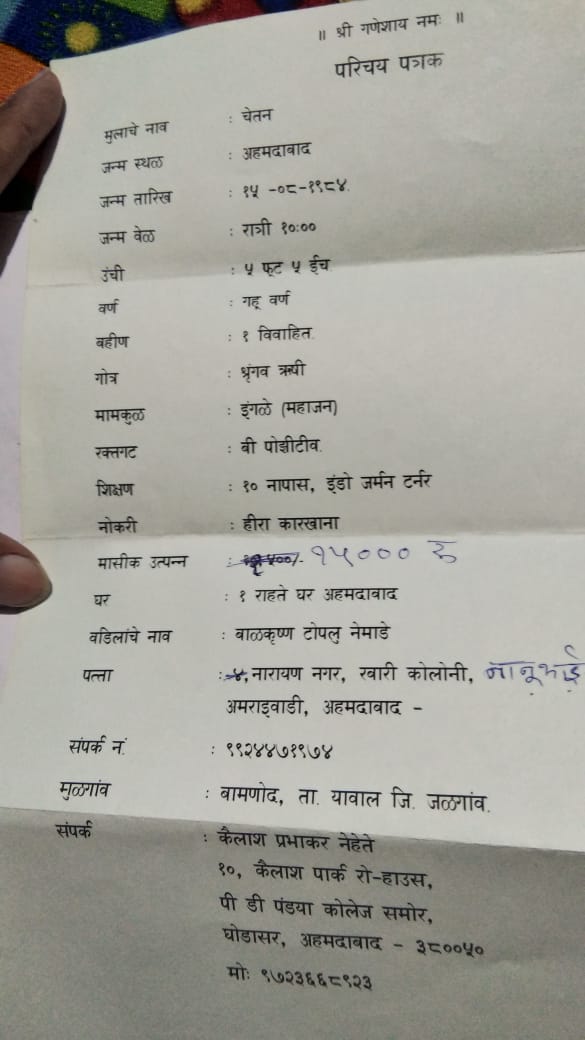 ॥ श्री गणेशाय नमः ॥
परिचय पत्रक
मुलाचे नाव : चेतन
जन्म स्थळ : अहमदावाद
जन्म तारिख : १५ -०८-१९८४.
जन्म वेळ : रात्री १०:००
उंची : ५ फूट ५ ईंच
वर्ण : गहू वर्ण
बहीण : १ विवाहित.
गोत्र : श्रृंगव ऋषी
मामकुळ : इंगळे (महाजन)
रक्तगट : बी पोझीटीव.
शिक्षण : १० नापास, इंडो जर्मन टर्नर
नोकरी : हीरा कारखाना
मासीक उत्पन्न : १५००० रु
घर : १ राहते घर अहमदावाद
वडिलांचे नाव : बाळकृष्ण टोपलु नेमाडे
पत्ता : ४, नारायण नगर, रबारी कोलोनी,
अमराइवाडी, अहमदावाद -
संपर्क नं. : ९९२४४७१९७४
मुळगांव : बामणोद, ता. यावाल जि. जळगांव.
संपर्क : कैलाश प्रभाकर नेहेते
१०, कैलाश पार्क रो-हाउस,
पी डी पंडया कोलेज समोर,
घोडासर, अहमदावाद - ३८००५०
मोः ९७२३६६८९२३